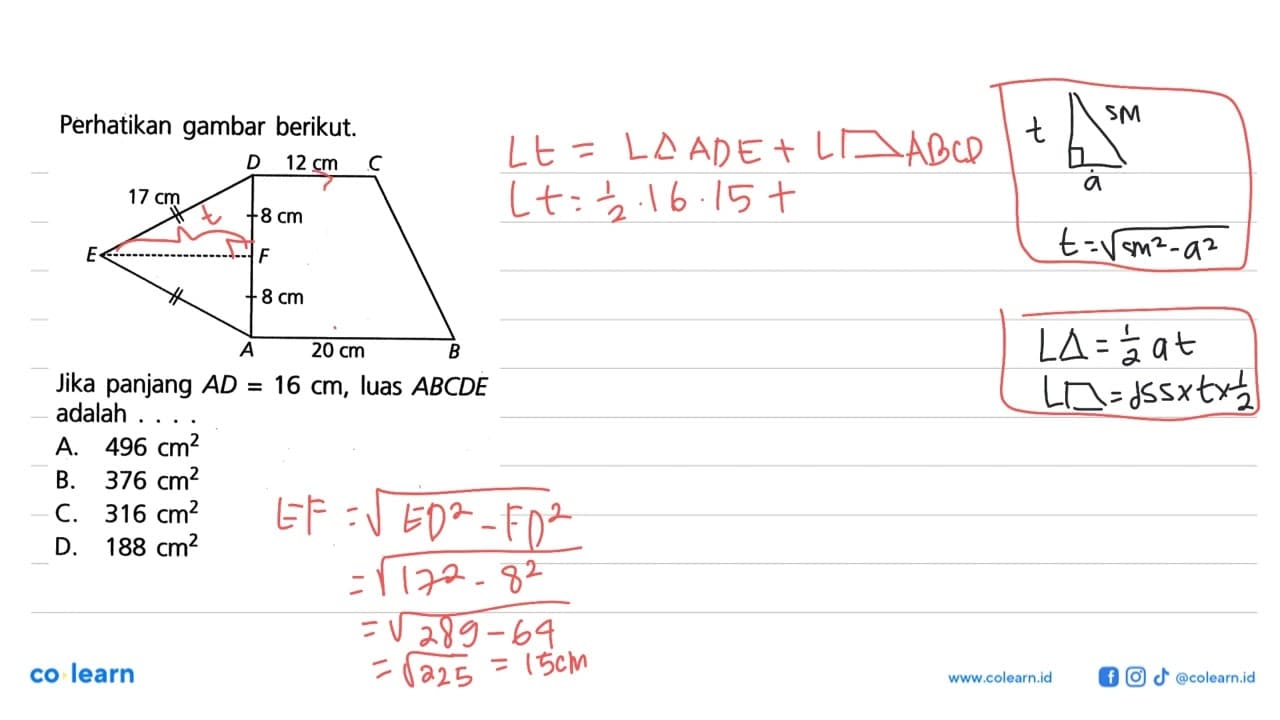 Perhatikan gambar berikut.
D 12 cm C
17 cm
t
8 cm
E
F
8 cm
A 20 cm B
Jika panjang AD = 16 cm, luas ABCDE
adalah . . . .
A. 496 cm²
B. 376 cm²
C. 316 cm²
D. 188 cm²
Lt = L△ADE + L⏢ABCD
Lt = 1/2 . 16 . 15 +
t
SM
a
t = √sm² - a²
L△ = 1/2 at
L⏢ = JSS x t x 1/2
EF = √ED² - FD²
= √17² - 8²
= √289 - 64
= √225 = 15cm
co·learn
www.colearn.id
@colearn.id